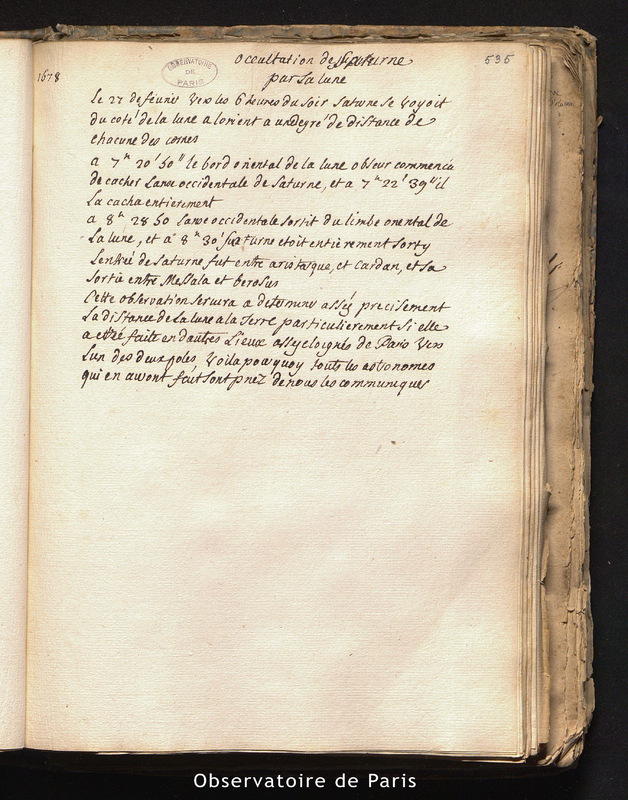 occultation de Saturne 535
OBSERVATOIRE DE PARIS
1678 par la lune
le 27 de feurier vers les 6 heures du soir Saturne se voyoit
du coté de la lune a lorient a un degré de distance de
chacune des cornes
a 7h 20' 50" le bord oriental de la lune obscur commenca
de cacher Lanse occidentale de Saturne, et a 7h 22' 39" il
La cacha entierement
a 8h 28 50 Lanse occidentale sortit du limbe oriental de
La lune, et a 8h 30' Saturne etoit entièrement sorty
Lentrée de Saturne fut entre aristarque, et Cardan, et sa
sortie entre Messala et berosus
Cette observation servira a determiner assés precisement
La distance de La lune a la Terre particulierement si elle
a etté faite en dautres Lieux assés eloignés de Paris vers
Lun des deux poles Voila pourquoy touts les astronomes
qui en auront fait sont priez de nous les communiquer
Observatoire de Paris